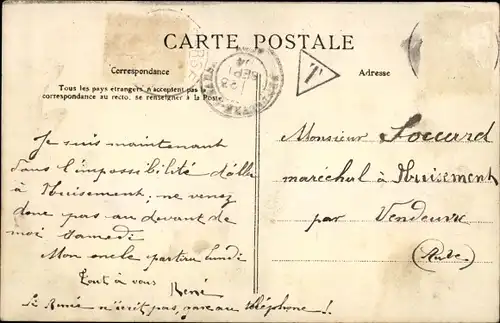 CARTE POSTALE
Correspondance
Adresse
Tous les pays étrangers n'acceptent pas
correspondance au recto, se renseigner à la Poste.
T
23
SEPT
Je suis maintenant
dans l'impossibilité d'aller
à Thuisement ; ne venez
donc pas au devant de
moi Samedi
Mon oncle partira lundi
Tout à vous
René
Si René n'écrit pas, gare au téléphone !
Monsieur Socard
maréchal à Thuisement
par Vendeuvre
(Aube)